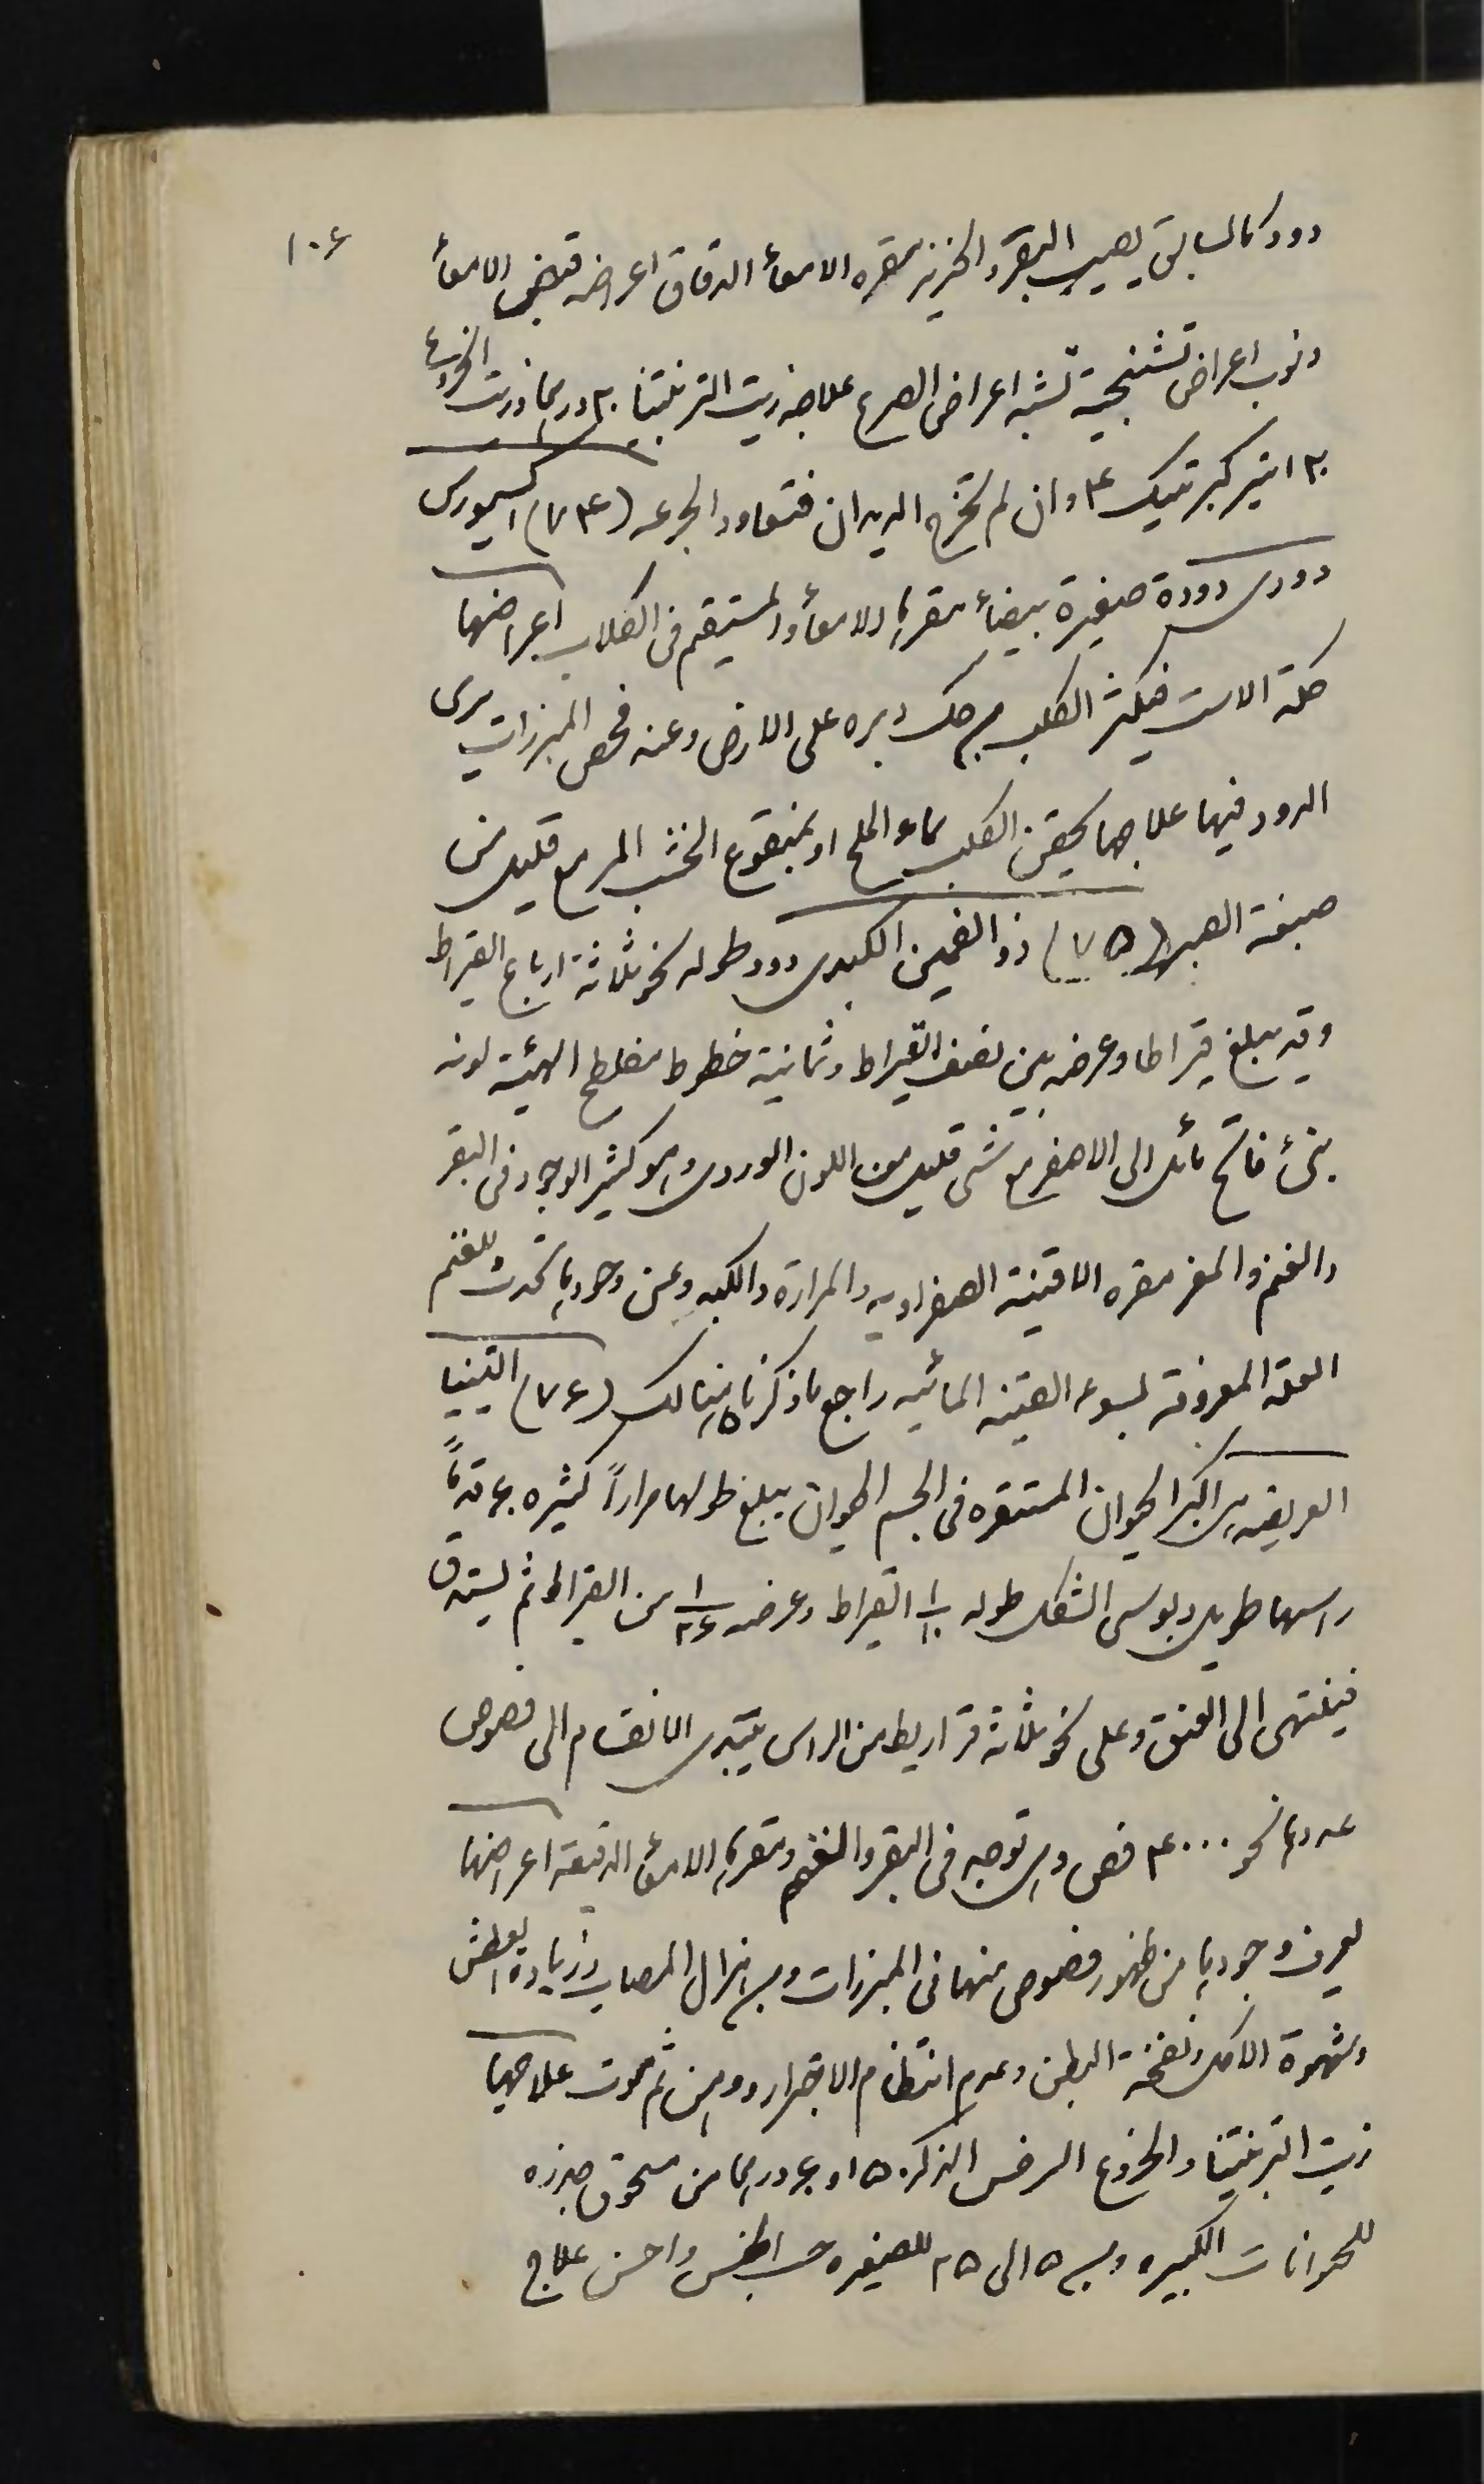 ١٠٦
دود كالسابق يصيب البقر والخنزير مقره الامعاء الدقاق اعراضه قبض الامعاء
ونوب اعراض تشنجية تشبه اعراض الصرع علاجه زيت التربنتينا ٣٠ درهما وزيت الخروع
٣٠ اتير كبرتيك ٤ وان لم تخرج الديدان فتعاود الجرعه (٧٤) اكسيورس
دودى دودة صغيرة بيضاء مقرها الامعاء والمستقيم فى الكلاب اعراضها
حكة الاست فيكثر الكلب من حك دبره على الارض وعند فحص المبرزات يرى
الدود فيها علاجها يحقن الكلب بماء الملح او بمنقوع الخشب المر مع قليل من
صبغة الصبر (٧٥) ذو الفمين الكبدى دود طوله نحو ثلاثة ارباع القيراط
وقد يبلغ قيراطا وعرضه بين نصف القيراط وثمانية خطوط مفلطح الهيئة لونه
بنى فاتح مائل الى الاصفر مع شى قليل من اللون الوردى وهو كثير الوجود فى البقر
والغنم والمعز مقره الاقنية الصفراويه والمرارة والكبد وعن وجودها تحدث للغنم
العلة المعروفة بسوء القنية المائيه راجع ما ذكرناه هنالك (٧٦) التينيا
العريضه هى اكبر الحيوان المستقره فى الجسم الحيوانى يبلغ طولها مراراً كثيره ٤٠ قدماً
راسها طويل دبوسى الشكل طوله ١/١٠ القيراط وعرضه ١/٢٤ من القيراط ثم يستدق
فينتهى الى العنق وعلى نحو ثلاثة قراريط من الراس يبتدى الانقسام الى فصوص
عددها نحو ٤٠٠٠ فص وهى توجد فى البقر والغنم ومقرها الامعاء الدقيقه اعراضها
يعرف وجودها من ظهور فصوص منها فى المبرزات ومن هزال المصاب وزيادة العطش
وشهوة الاكل ونفخة البطن وعدم انتظام الاجترار ووهن ثم موت علاجها
زيت التربنتينا والخروع السرخس الذكر ١٥٠ او ٤٠ درهما من مسحوق جذره
للحيوانات الكبيره ومن ٥ الى ٢٥ للصغيره حسب الجنس واحسن علاج